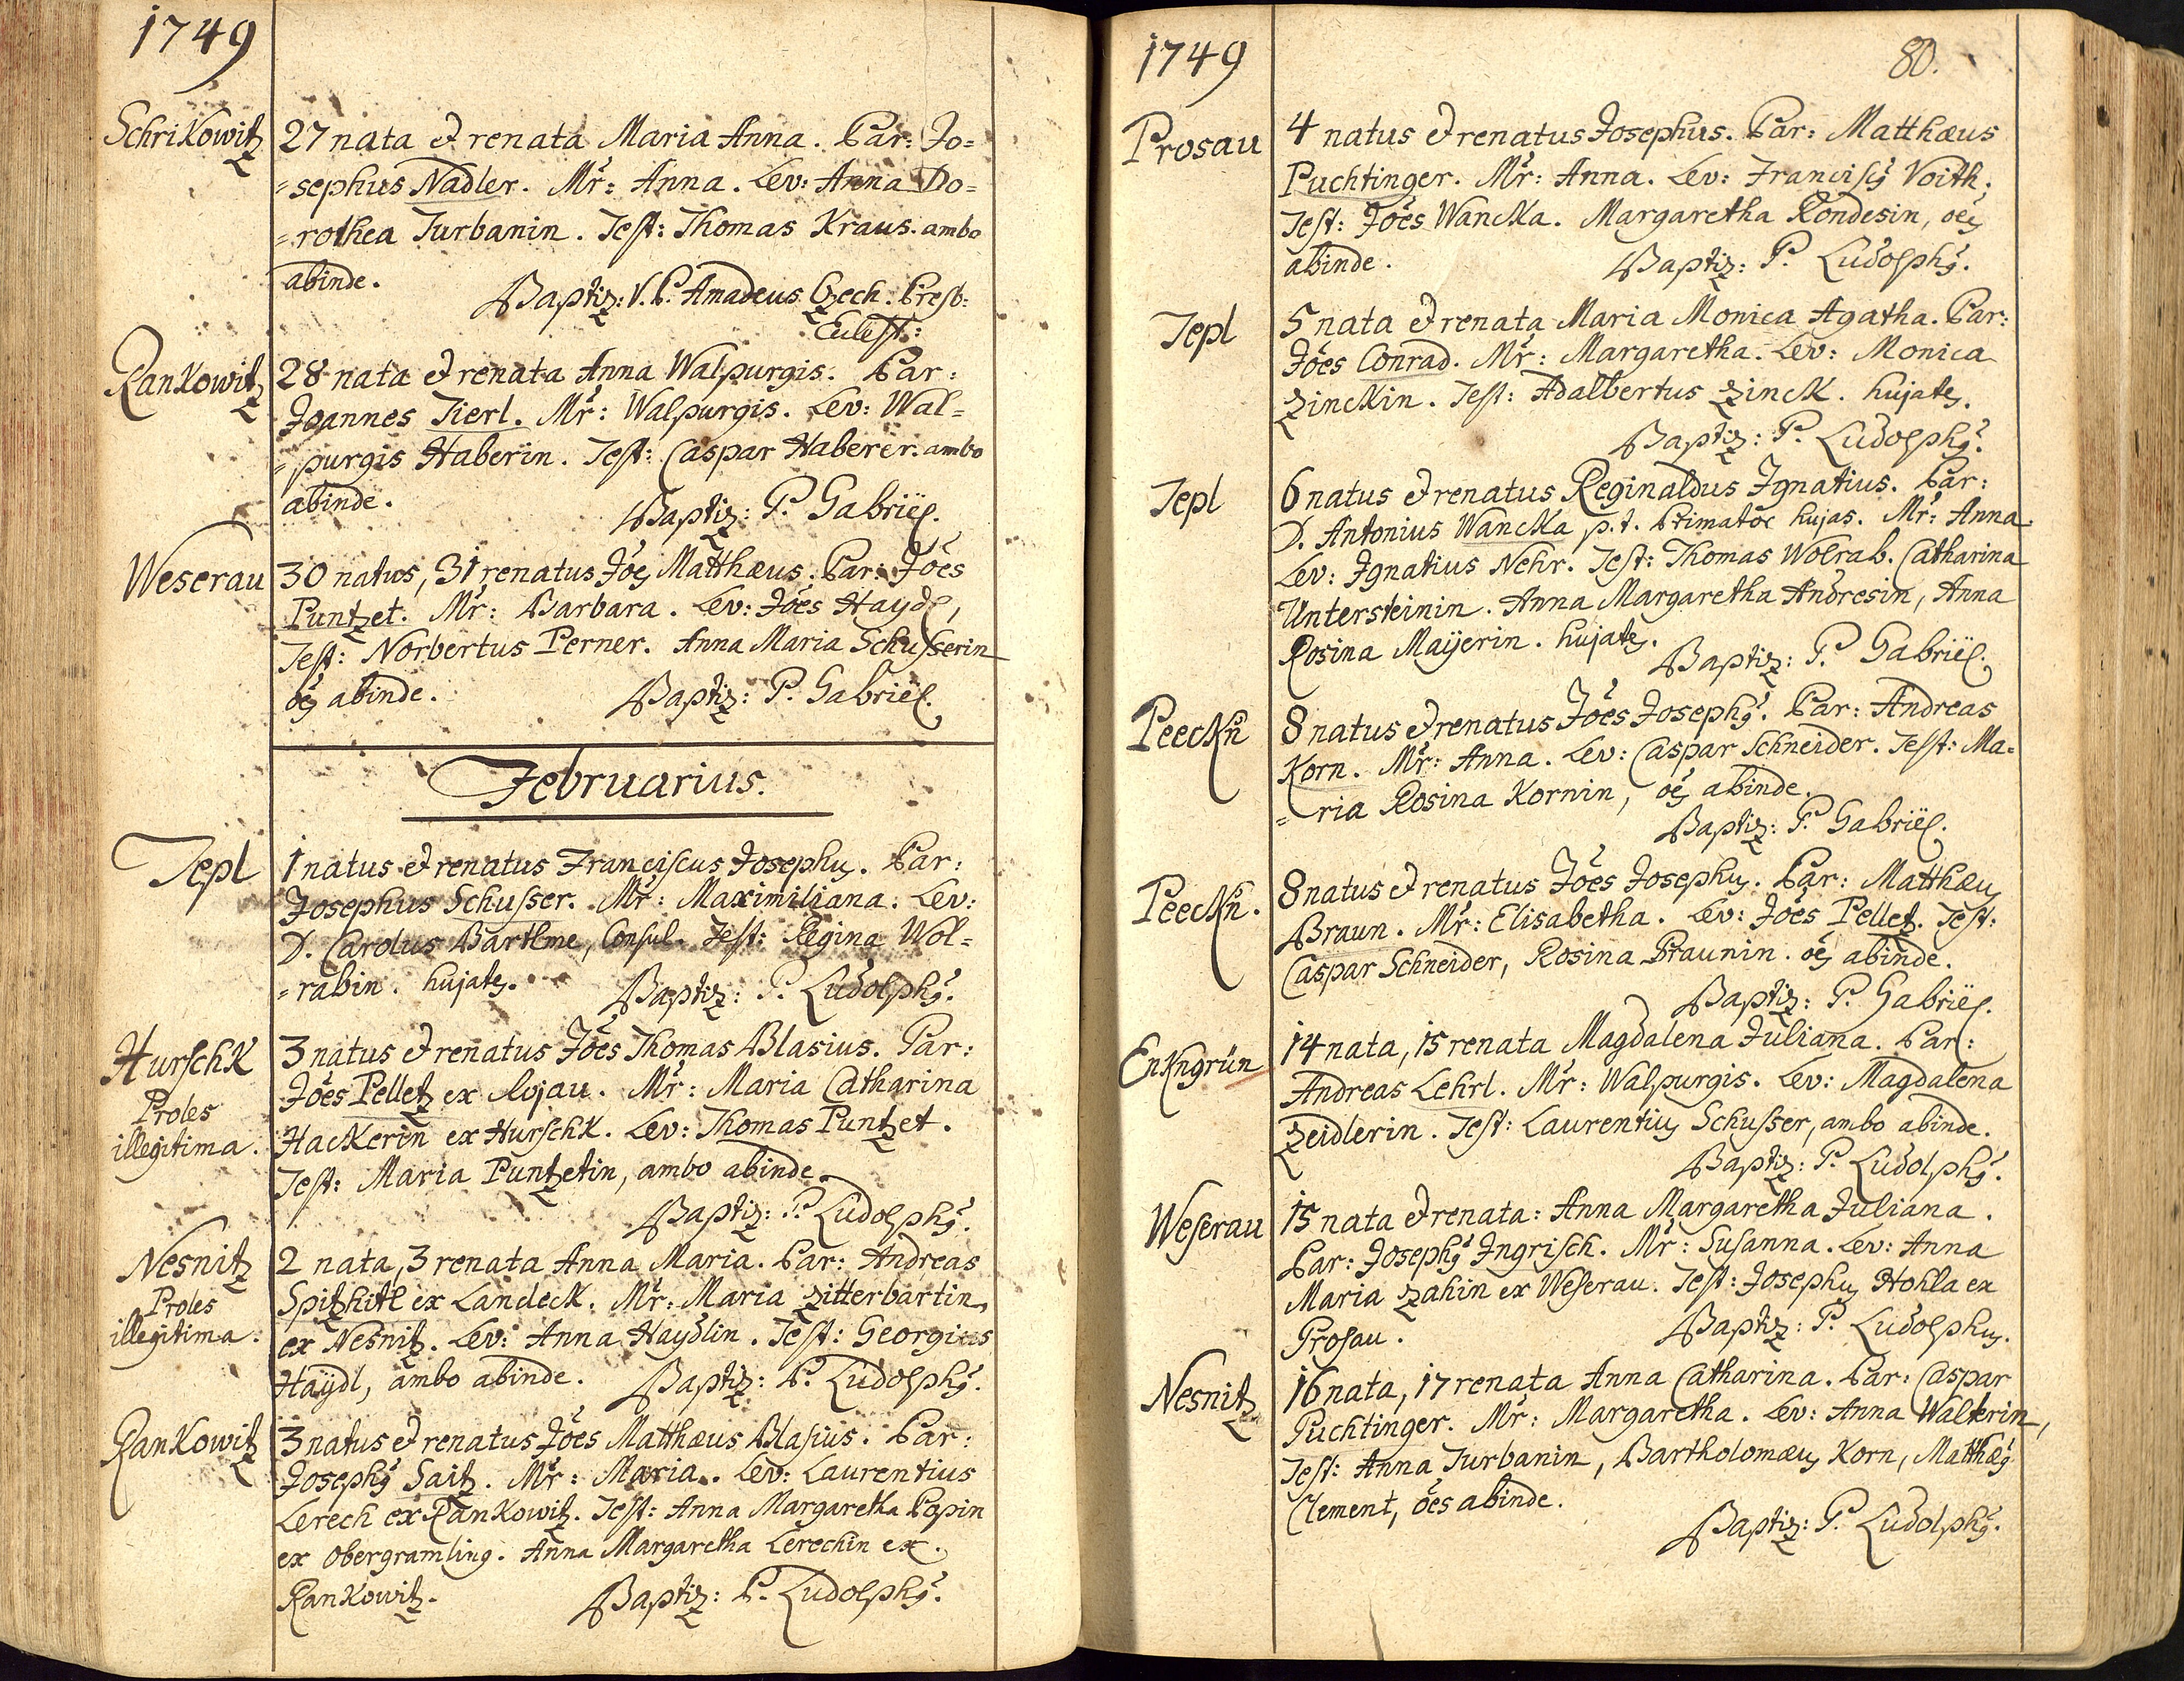 1749
Schrikowitz
27 nata et renata Maria Anna. Par: Jo=
=sephus Nadler. Mr: Anna. Lev: Anna Do=
=rothea Turbanin. Test: Thomas Kraus. ambo
abinde.
Baptiz: V. P. Amadeus Czech. Presb:
Rankowitz
28 nata et renata Anna Walpurgis. Par:
Joannes Tierl. Mr: Walpurgis. Lev: Wal=
=purgis Haberin. Test: Caspar Haberer. ambo
abinde. Baptiz: P. Gabriël.
Weserau
30 natus, 31 renatus Joes Matthæus. Par: Jões
Puntzet. Mr: Barbara. Lev: Jões Haydl,
Test: Norbertus Perner. Anna Maria Schusserin
oes abinde. Baptiz: P. Gabriël.
Februarius.
Tepl
1 natus et renatus Franciscus Josephus. Par:
Josephus Schusser. Mr: Maximiliana. Lev:
D. Carolus Bartlme, Consul. Test: Regina Wol=
=rabin. hujates. Baptiz: P. Ludolphus.
Hurschk
Proles
illegitima.
3 natus et renatus Jões Thomas Blasius. Par:
Jões Pelletz ex lojau. Mr: Maria Catharina
Hackerin ex Hurschk. Lev: Thomas Puntzet.
Test: Maria Puntzetin, ambo abinde.
Baptiz: P. Ludolphus.
Nesnitz
Proles
illegitima.
2 nata, 3 renata Anna Maria. Par: Andreas
Spitzhitl ex Landeck. Mr: Maria Zitterbartin
ex Nesnitz. Lev: Anna Haydlin. Test: Georgius
Haÿdl, ambo abinde. Baptiz: P. Ludolphus.
Rankowitz
3 natus et renatus Jões Matthæus Blasius. Par:
Josephus Saitz. Mr: Maria. Lev: Laurentius
Lerech ex Rankowitz. Test: Anna Margaretha Popin
ex Obergramling. Anna Margaretha Lerechin ex
Rankowitz. Baptiz: P. Ludolphus.
1749 80.
Prosau
4 natus et renatus Josephus. Par: Matthæus
Puchtinger. Mr: Anna. Lev: Franciscus Voith.
Test: Jões Wancka. Margaretha Rondesin, oes
abinde. Baptiz: P. Ludolphus.
Tepl
5 nata et renata Maria Monica Agatha. Par:
Jões Conrad. Mr: Margaretha. Lev: Monica
Zinckin. Test: Adalbertus Zinck. hujates.
Baptiz: P. Ludolphus.
Tepl
6 natus et renatus Reginaldus Ignatius. Par:
D. Antonius Wancka p.t. hujas. Mr: Anna.
Lev: Ignatius Nehr. Test: Thomas Wolrab. Catharina
Untersteinin. Anna Margaretha Andresin, Anna
Rosina Maÿerin. hujates. Baptiz: P. Gabriël.
Peeckn
8 natus et renatus Jões Josephus. Par: Andreas
Korn. Mr: Anna. Lev: Caspar Schneider. Test: Ma=
=ria Rosina Kornin, oes abinde.
Baptiz: P. Gabriël.
Peeckn.
8 natus et renatus Jões Josephus. Par: Matthæus
Braun. Mr: Elisabetha. Lev: Jões Pelletz. Test:
Caspar Schneider, Rosina Braunin. oes abinde.
Baptiz: P. Gabriël.
Enkngrün
14 nata, 15 renata Magdalena Juliana. Par:
Andreas Lehrl. Mr: Walpurgis. Lev: Magdalena
Zeidlerin. Test: Laurentius Schusser, ambo abinde.
Baptiz: P. Ludolphus.
Weserau
15 nata et renata: Anna Margaretha Juliana.
Par: Josephus Ingrisch. Mr: Susanna. Lev: Anna
Maria Zahin ex Weserau. Test: Josephus Hohla ex
Prosau. Baptiz: P. Ludolphus.
Nesnitz
16 nata, 17 renata Anna Catharina. Par: Caspar
Puchtinger. Mr: Margaretha. Lev: Anna Walterin,
Test: Anna Turbanin, Bartholomæus Korn, Matthæus
Clement, ões abinde.
Baptiz: P. Ludolphus.